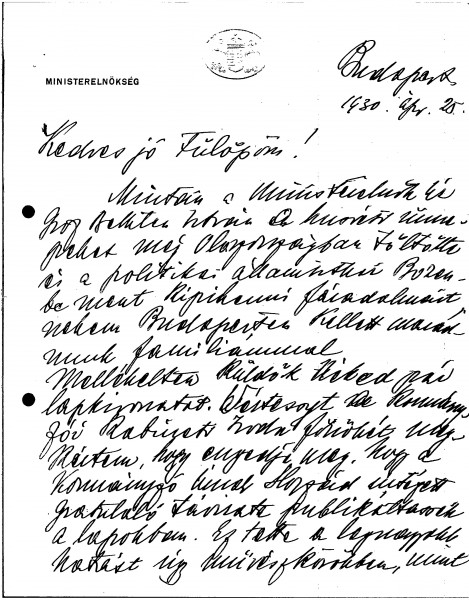 MINISTERELNÖKSÉG
Budapest
1930. ápr. 25.
Kedves jó Fülöpöm!
Miután a Miniszterelnök és
gróf Bethlen István a husvéti ünne-
peket még Olaszországban töltötte
és a politikai államtitkár Bozen-
be ment kipihenni fáradalmait
nekem Budapesten kellett marad-
nunk familiámmal
Mellékelten küldök Néked pár
lapkivonatot. Vértesyt a Kormány-
zói Kabinet Iroda főnökét meg-
kértem, hogy engedje meg, hogy a
Kormányzó úrnak Hozzád intézett
gratuláló távirata publikáltassék
a lapokban. Ez tette a legnagyobb
hatást úgy művészkörökben, mint